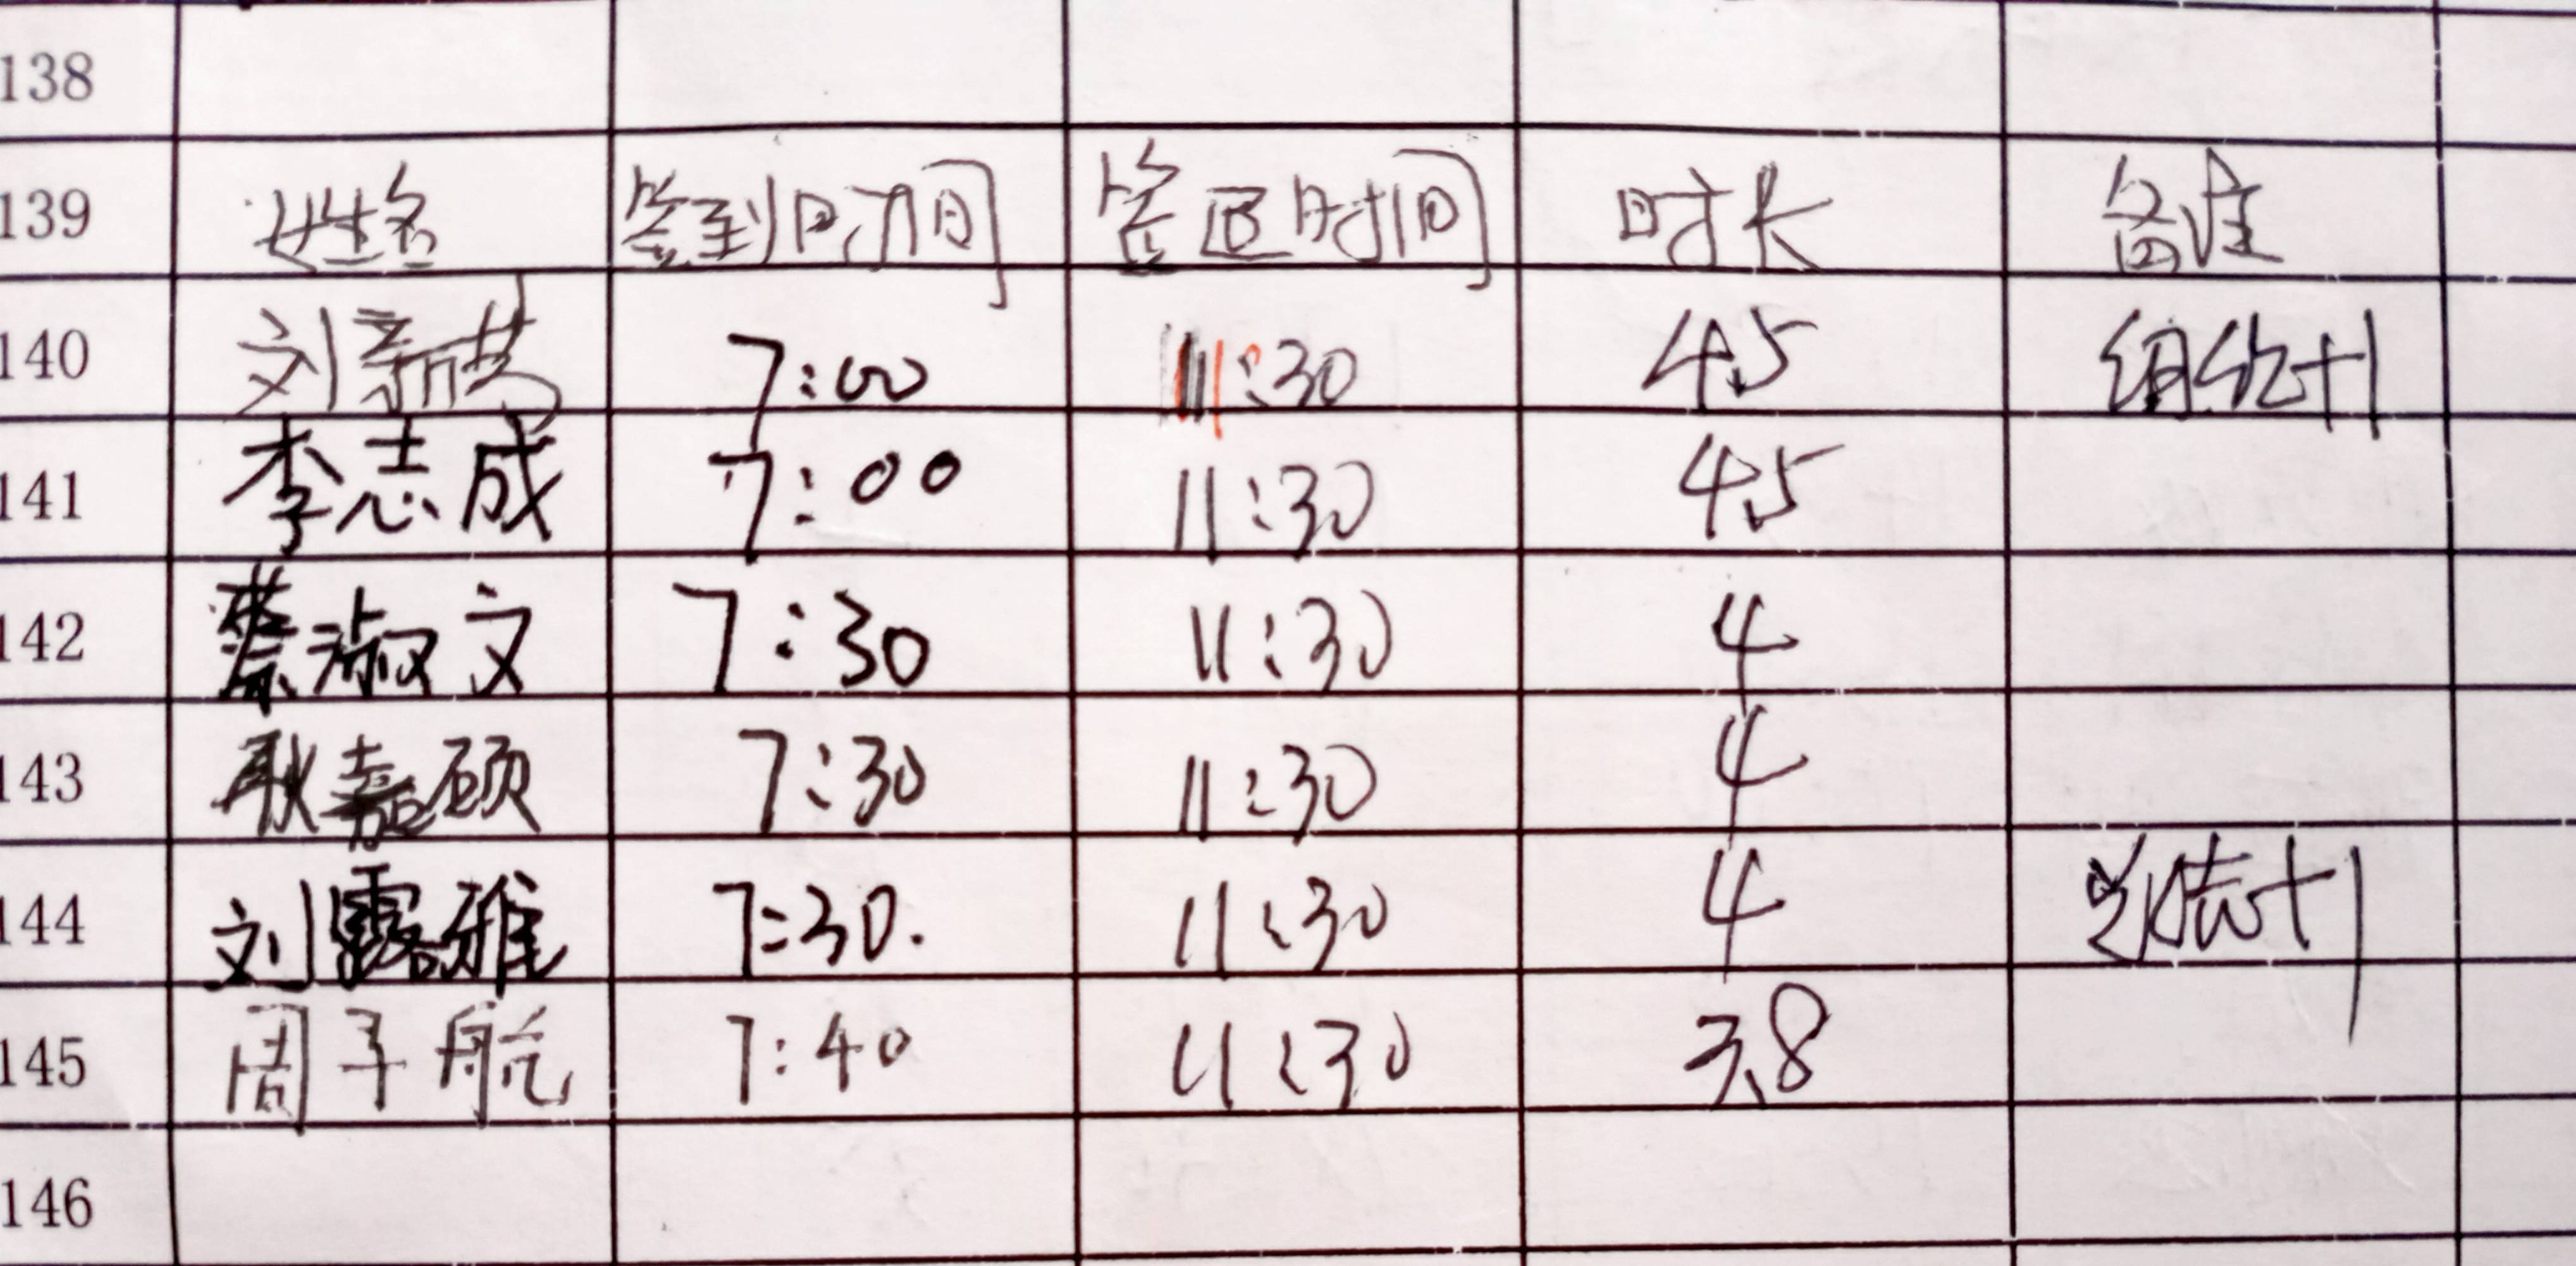 138
139 姓名 签到时间 签退时间 时长 备注
140 刘 7:00 11:30 4.5 组织+1
141 李志成 7:00 11:30 4.5
142 蔡淑文 7:30 11:30 4
143 耿嘉硕 7:30 11:30 4
144 刘露雅 7:30. 11:30 4 +1
145 周子航 7:40 11:30 3.8
146